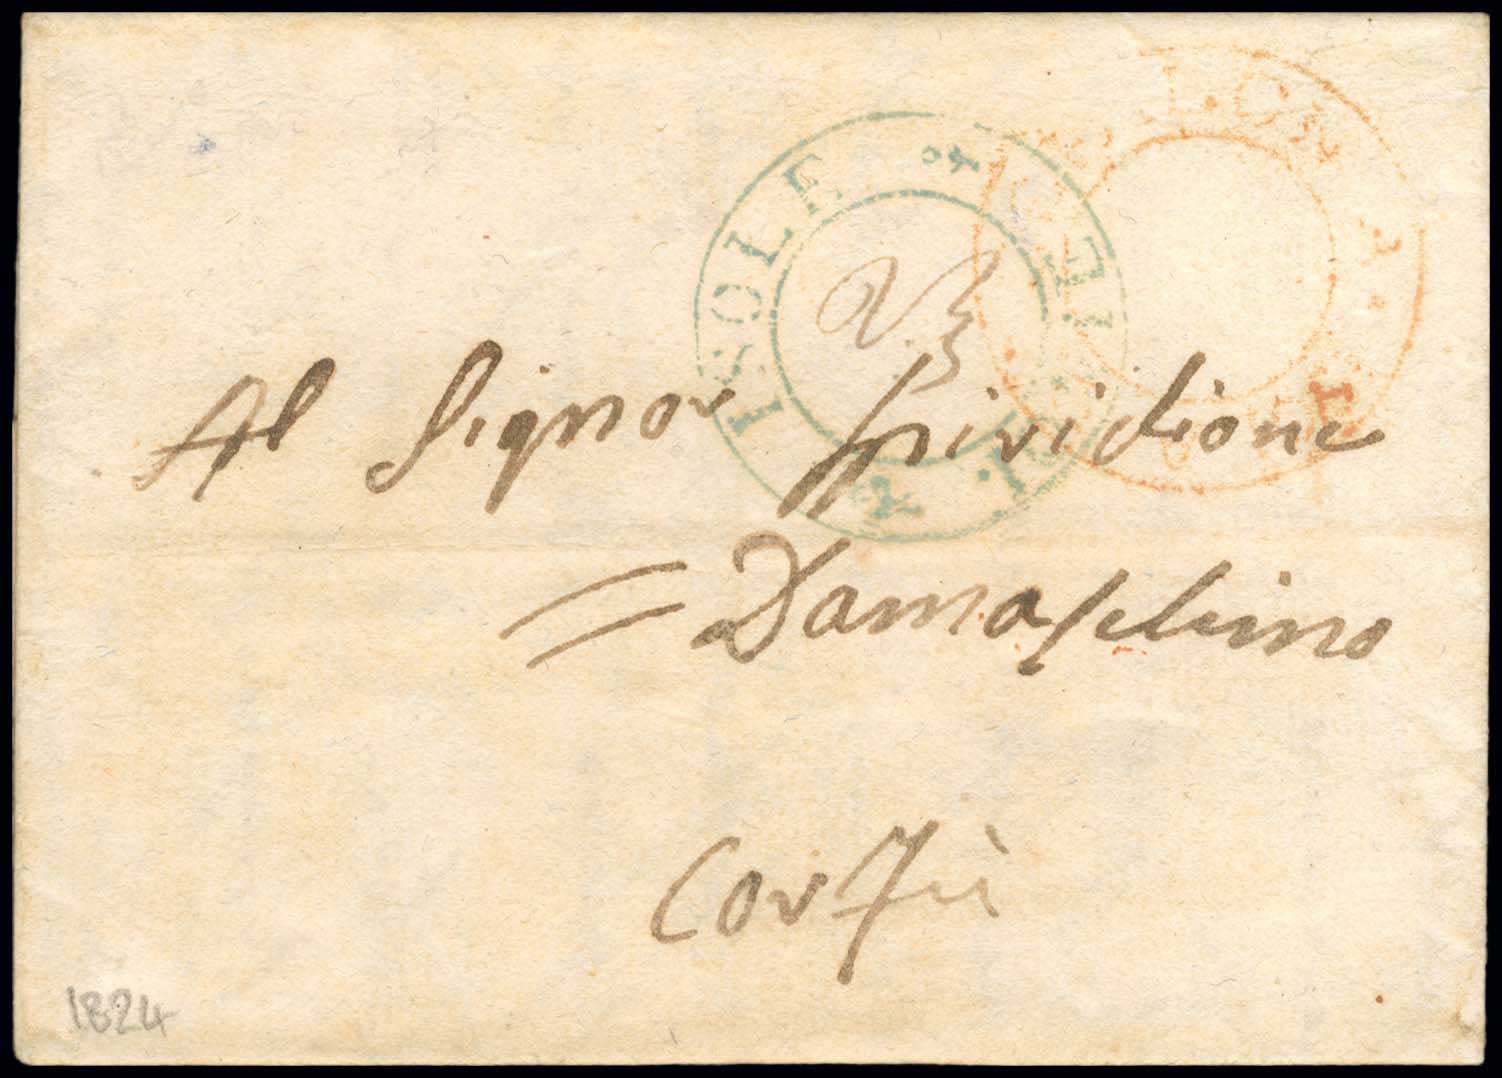 ISOLE
Al Signor Spiridione
= Damaschino
Corfù
1824